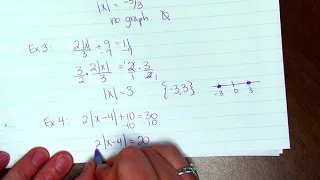 |x| = -5/3
no graph ∅
Ex 3: 2|x|/3 + 9 = 11
-9 -9
3/2 · 2|x|/3 = 2/1 · 3/2
|x| = 3 {-3,3} -3 0 3
Ex 4: 2|x-4| + 10 = 30
-10 -10
2|x-4| = 20